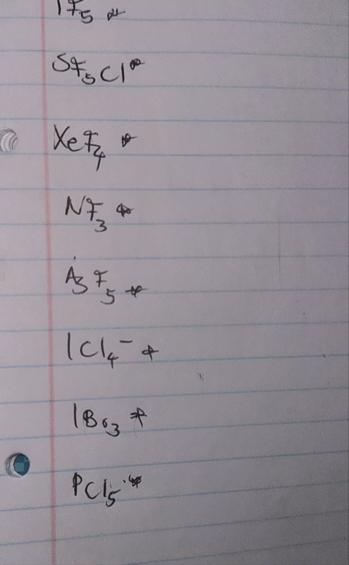 IF₅ *
SF₅Cl *
XeF₄ *
NF₃ *
AsF₅ *
ICl₄⁻ *
IBr₃ *
PCl₅ *